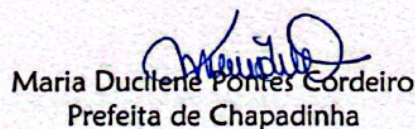 Maria Ducilene Pontes Cordeiro
Prefeita de Chapadinha